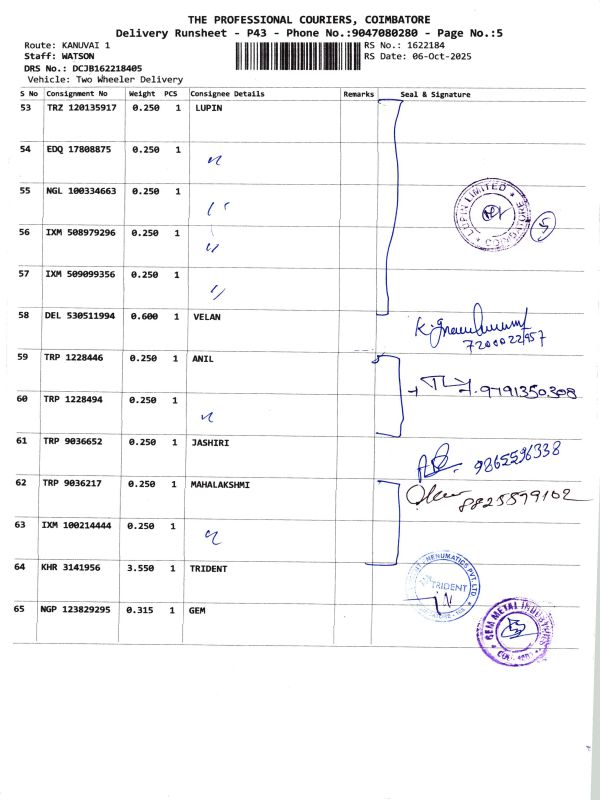 THE PROFESSIONAL COURIERS, COIMBATORE
Delivery Runsheet - P43 - Phone No.:9047080280 - Page No.:5
Route: KANUVAI 1
RS No.: 1622184
Staff: WATSON
RS Date: 06-Oct-2025
DRS No.: DCJB162218405
Vehicle: Two Wheeler Delivery
S No Consignment No Weight PCS Consignee Details Remarks Seal & Signature
53 TRZ 120135917 0.250 1 LUPIN
54 EDQ 17808875 0.250 1 〃
55 NGL 100334663 0.250 1 〃
LUPIN LIMITED
5
56 IXM 508979296 0.250 1 〃
57 IXM 509099356 0.250 1 〃
58 DEL 530511994 0.600 1 VELAN
59 TRP 1228446 0.250 1 ANIL
9791350308
60 TRP 1228494 0.250 1 〃
61 TRP 9036652 0.250 1 JASHIRI
9865596338
62 TRP 9036217 0.250 1 MAHALAKSHMI
8825899102
63 IXM 100214444 0.250 1 〃
64 KHR 3141956 3.550 1 TRIDENT
TRIDENT
65 NGP 123829295 0.315 1 GEM
GEM METAL INDUSTRIES